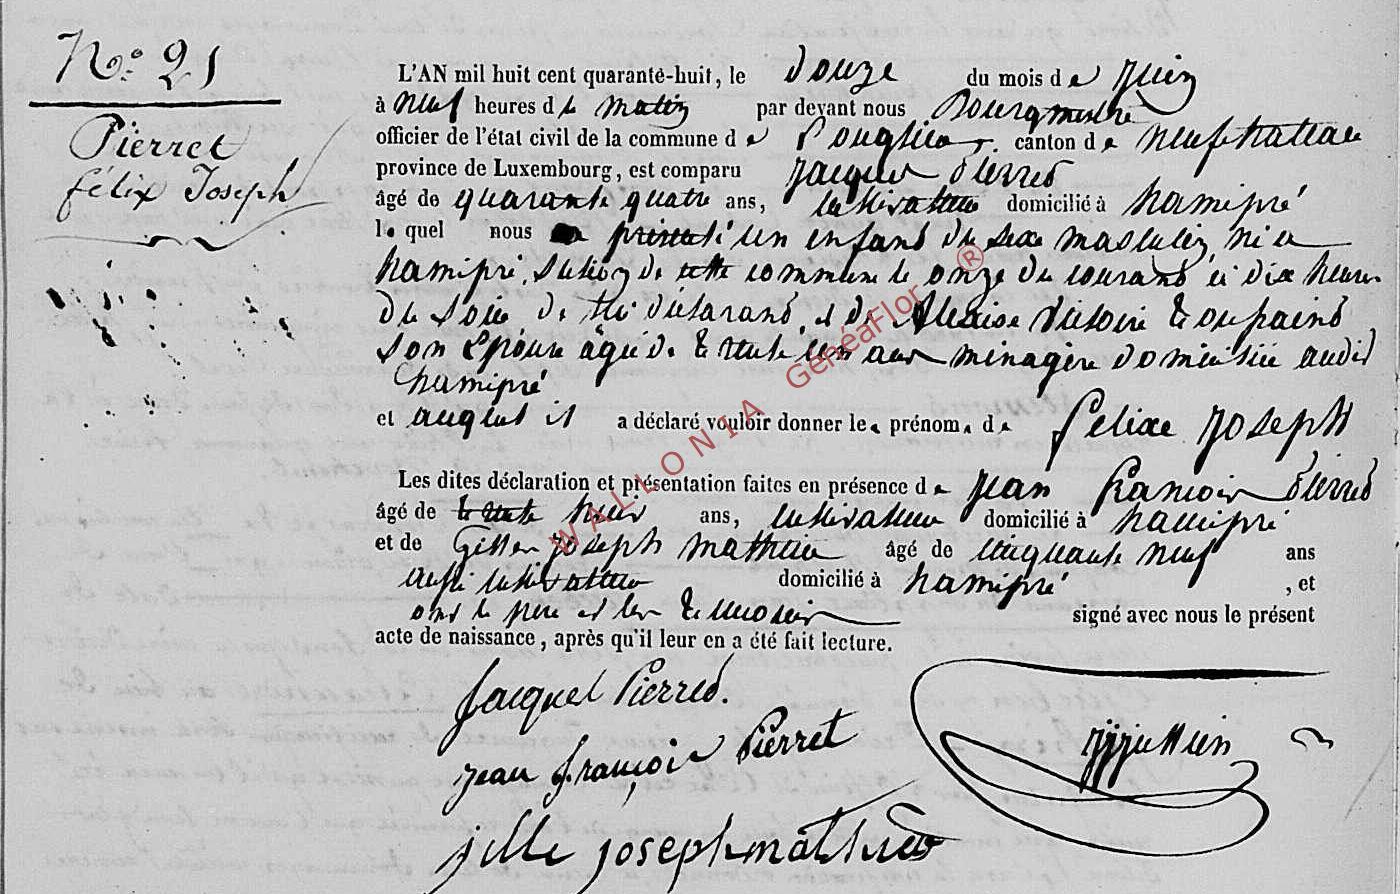 N.º 21
Pierret
félix Joseph
L'AN mil huit cent quarante-huit, le douze du mois de juin
à neuf heures du matin par devant nous Bourgmestre
officier de l'état civil de la commune de Longlier canton de neufchateau
province de Luxembourg, est comparu jacques Pierret
âgé de quarante quatre ans, cultivateur domicilié à hamipré
lequel nous a présenté un enfant du sexe masculin né a
hamipré, section de cette commune le onze du courant à dix heures
du soir de lui déclarant, et de victoire toupaint
son épouse âgée de trente un ans ménagère domiciliée audit
hamipré
et auquel il a déclaré vouloir donner les prénoms de felixe joseph
Les dites déclaration et présentation faites en présence de jean francois Pierret
âgé de trente huit ans, cultivateur domicilié à hamipré
et de joseph mathieu âgé de cinquante neuf ans
aussi cultivateur domicilié à hamipré , et
ont le pere et les temoins signé avec nous le présent
acte de naissance, après qu'il leur en a été fait lecture.
Jacques Pierret.
jean françois Pierret
jille joseph mathieu
WALLONIA GenéaFlor ®